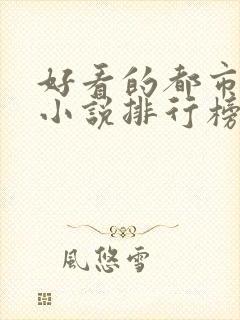 好看的都市
小说排行榜
風悠雪